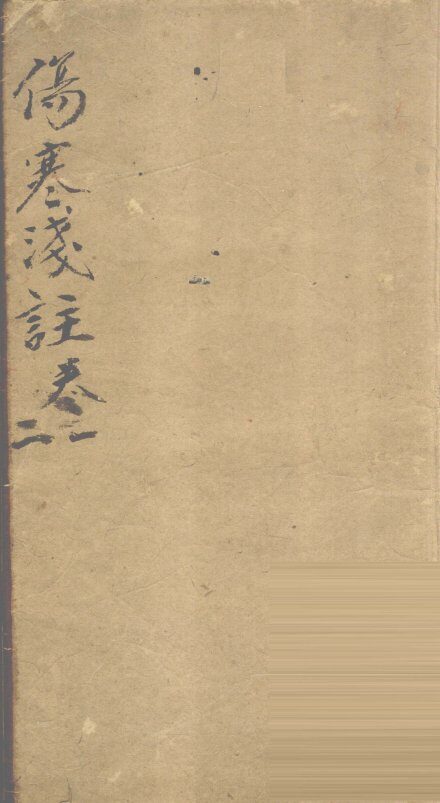 傷寒淺註卷
一二